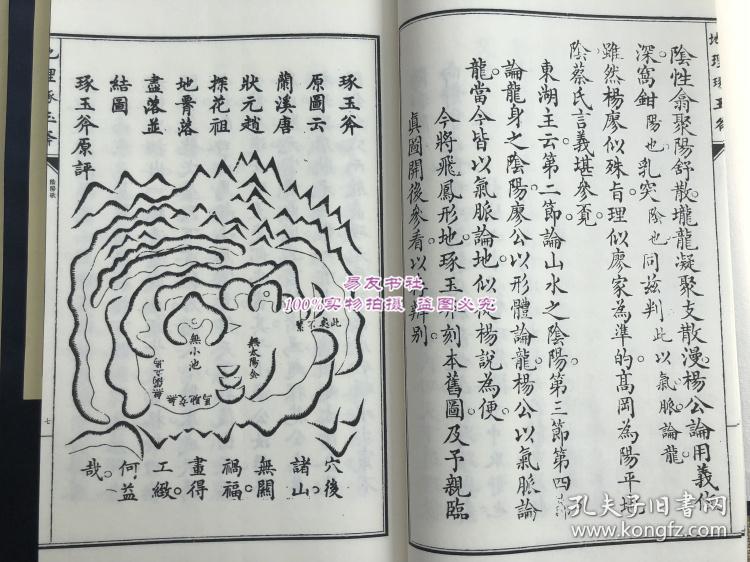 地理琢玉斧
陰性翕聚陽舒散壠龍凝聚支散漫楊公論用義
深窩鉗陽也乳突陰也同茲判此以氣脈論龍
雖然楊廖似殊旨理似廖家為準的高岡為陽平地
陰蔡氏言義堪參覔
東湖主云第二節論山水之陰陽第三節第四節
論龍身之陰陽廖公以形體論龍楊公以氣脈論
龍當今皆以氣脈論地似從楊說為便
今將飛鳳形地琢玉斧刻本舊圖及予親臨
真圖開後參看以
別
琢玉斧
原圖云
蘭溪唐
狀元趙
探花祖
地脊落
盡落並
結圖
琢玉斧原評
無小池
無太陽金
此處不
穴後
諸山
無關
禍福
畫得
工緻
何益
哉
七
易友书社
100%实物拍摄 盗图必究
孔夫子旧书网
www.kongfz.com